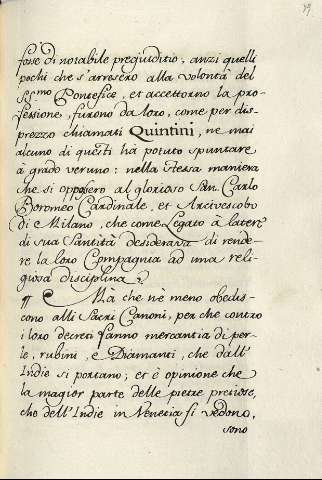 39
fosse di notabile pregiuditio, anzi quelli
pochi che s'arresero alla volontà del
SS.mo Pontefice, et accettorno la pro-
fessione, furono da loro, come per dis-
prezzo chiamati Quintini, ne mai
alcuno di questi hà potuto spuntare
à grado veruno: nella stessa maniera
che si opposero al glorioso San Carlo
Boromeo Cardinale, et Arcivescobo
di Milano, che come Legato à latere
di sua Santità desiderava di rende-
re la loro Compagnia ad una reli-
giossa disciplina.
¶ Mà che nè meno obedis-
cono alli Sacri Canoni, perche contro
i loro decreti fanno mercantia di per-
le, rubini, e Diamanti, che dall'
Indie si portano; et è opinione che
la magior parte delle pietre pretiose,
che dell'Indie in Venetia si vedono,
sono